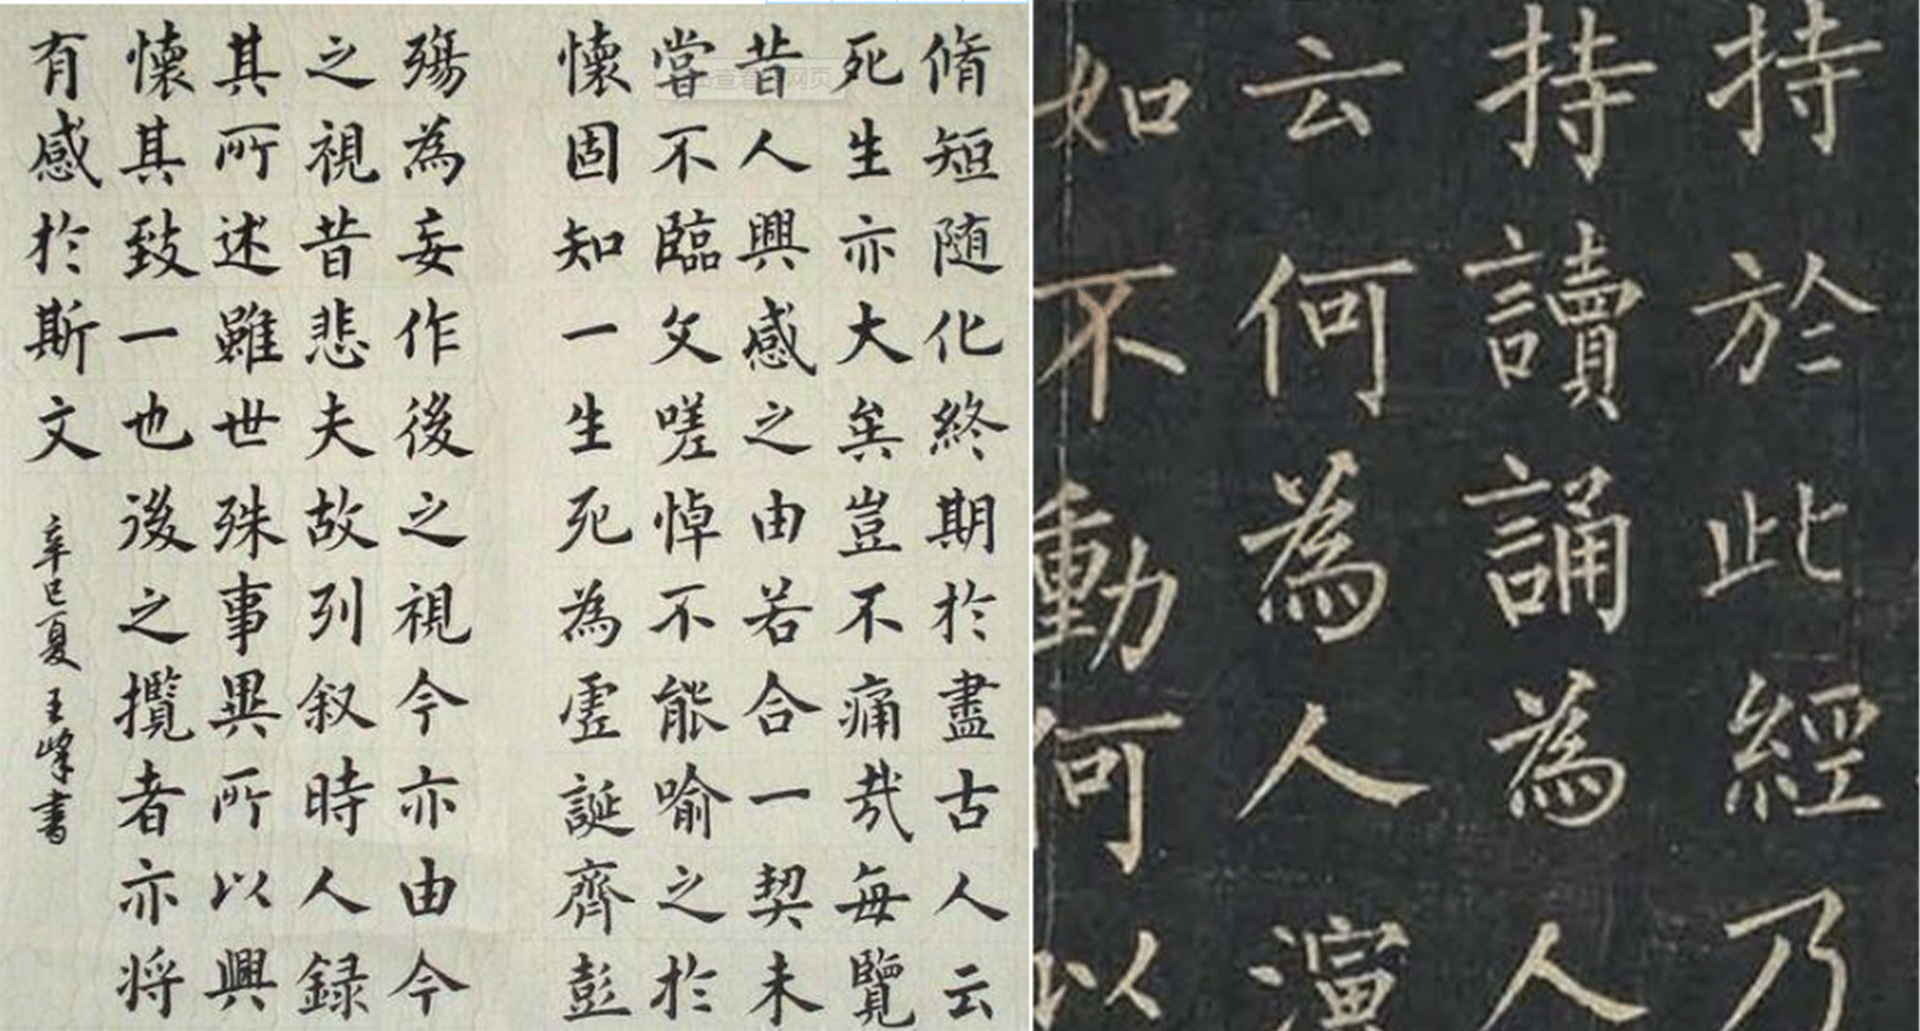 脩短随化終期於盡古人云
死生亦大矣豈不痛哉每覽
昔人興感之由若合一契未
嘗不臨文嗟悼不能喻之於
懷固知一生死為虛誕齊彭
殤為妄作後之視今亦由今
之視昔悲夫故列叙時人録
其所述雖世殊事異所以興
懷其致一也後之攬者亦将
有感於斯文
辛巳夏王峰書
持於此經乃
持讀誦為人
云何為人演
如不動何以